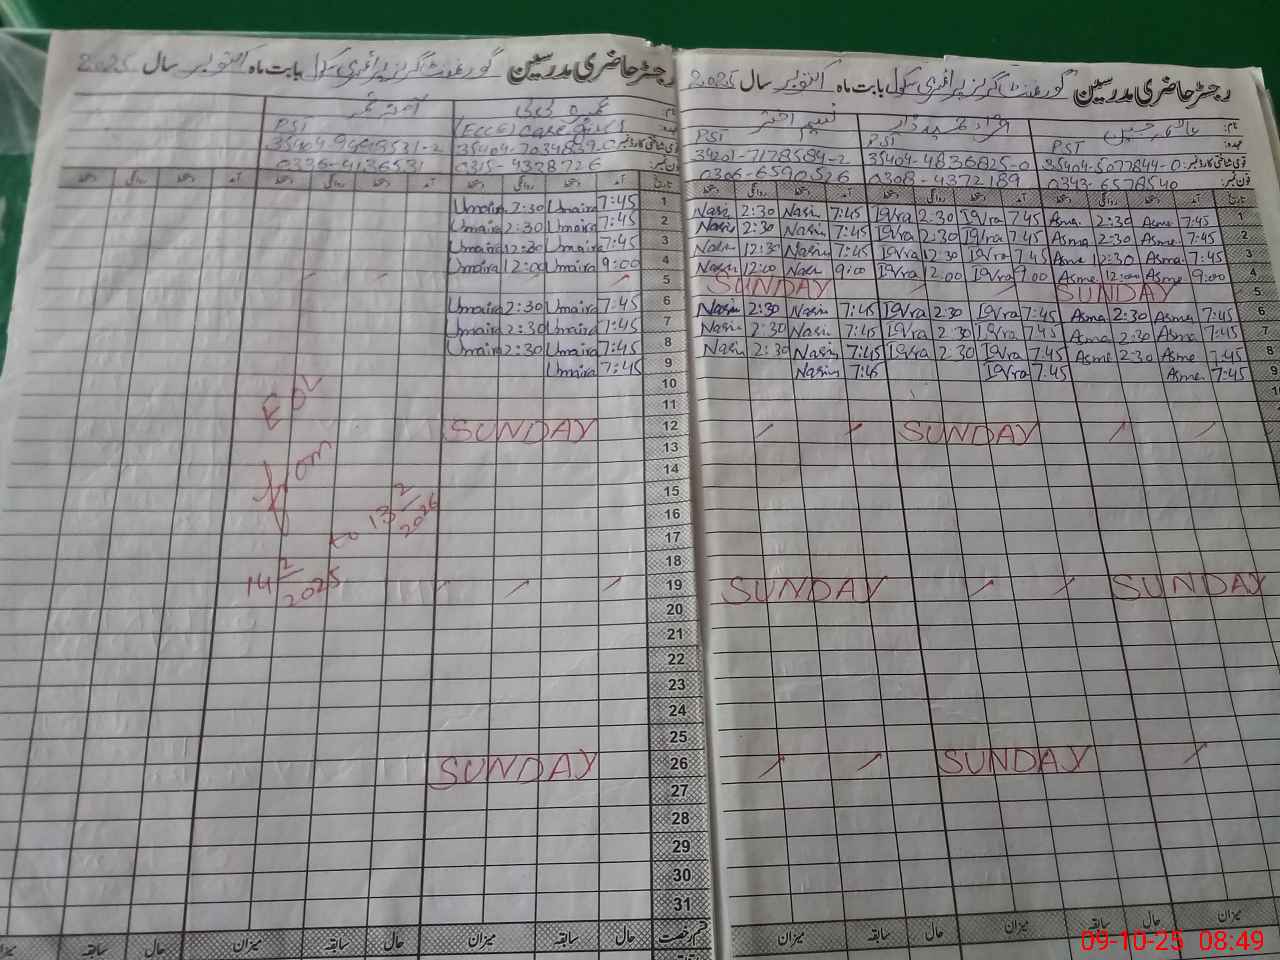 رجسٹر حاضری مدرسین گورنمنٹ گرلز پرائمری سکول بابت ماہ اکتوبر سال 2025
نام:
عہدہ: PST PST PST
قومی شناختی کارڈ نمبر: 35404-5077844-0 35404-4836825-0 34201-7178584-2
فون نمبر: 0343-6578540 0308-4372189 0306-6590526
تاریخ آمد دستخط روانگی دستخط آمد دستخط روانگی دستخط آمد دستخط روانگی دستخط
1 7:45 Asma 2:30 Asma 7:45 Iqra 2:30 Iqra 7:45 Nasim 2:30 Nasim
2 7:45 Asma 2:30 Asma 7:45 Iqra 2:30 Iqra 7:45 Nasim 2:30 Nasim
3 7:45 Asma 12:30 Asma 7:45 Iqra 12:30 Iqra 7:45 Nasim 12:30 Nasim
4 9:00 Asma 12:00 Asma 9:00 Iqra 12:00 Iqra 9:00 Nasim 12:00 Nasim
5 SUNDAY SUNDAY
6 7:45 Asma 2:30 Asma 7:45 Iqra 2:30 Iqra 7:45 Nasim 2:30 Nasim
7 7:45 Asma 2:30 Asma 7:45 Iqra 2:30 Iqra 7:45 Nasim 2:30 Nasim
8 7:45 Asma 2:30 Asma 7:45 Iqra 2:30 Iqra 7:45 Nasim 2:30 Nasim
9 7:45 Asma 7:45 Iqra 7:45 Nasim
10
SUNDAY
SUNDAY SUNDAY
SUNDAY
میزان حال سابقہ میزان حال سابقہ میزان
رجسٹر حاضری مدرسین گورنمنٹ گرلز پرائمری سکول بابت ماہ اکتوبر سال 2025
نام:
عہدہ: (ECCE) Care Giver PST
قومی شناختی کارڈ نمبر: 35404-7034839-0
فون نمبر: 0315-4328726 0336-4136531
تاریخ آمد دستخط روانگی دستخط آمد دستخط روانگی دستخط آمد دستخط روانگی دستخط
1 7:45 Umaira 2:30 Umaira
2 7:45 Umaira 2:30 Umaira
3 7:45 Umaira 12:30 Umaira
4 9:00 Umaira 12:00 Umaira
5
6 7:45 Umaira 2:30 Umaira
7 7:45 Umaira 2:30 Umaira
8 7:45 Umaira 2:30 Umaira
9 7:45 Umaira
10
11
12 SUNDAY
13
14
15
16
17
18
19
20
21
22
23
24
25
26 SUNDAY
27
28
29
30
31
EOL
from
14/2/2025 to 13/2/2026
قسم رخصت حال سابقہ میزان حال سابقہ میزان حال سابقہ میزان
09-10-25 08:49